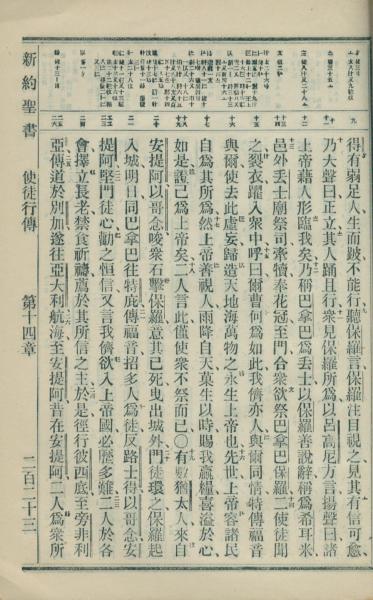 得有弱足人生而跛不能行聽保羅言保羅注目視之見其有信可愈
乃大聲曰正立其人踊且行衆見保羅所爲以呂高尼方言揚聲曰諸
上帝藉人形臨我矣乃稱巴拿巴爲丟士以保羅善說辭稱爲希耳米
邑外丟士廟祭司牽犢奉花冠至門合衆欲祭巴拿巴保羅二使徒聞
之裂衣躍入衆中呼曰爾曹何爲如此我儕亦人與爾同情特傳福音
與爾使去此虛妄歸造天地海萬物之永生上帝也先世上帝容諸民
自爲其所爲然上帝善視人雨降自天菓生以時賜我贏糧喜溢於心
如是證己爲上帝矣二人言此僅使衆不祭而已〇有數猶太人來自
安提阿以哥念唆衆石擊保羅意其已死曳出城外門徒環之保羅起
入城明日同巴拿巴往特庇傳福音招多人爲徒反路士得以哥念安
提阿堅門徒心勸之恒信又言我儕欲入上帝國必歷多難二人於各
會擇立長老禁食祈禱薦於其所信之主於是徑行彼西底至旁非利
亞傳道於別加遂往亞大利航海至安提阿昔在安提阿二人爲衆所
新約聖書 使徒行傳 第十四章 二百二十三